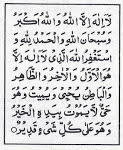 لَآ اِلٰهَ اِلَّا اللّٰهُ وَاللّٰهُ اَكْبَرُ
وَسُبْحَانَ اللّٰهِ وَالْحَمْدُ لِلّٰهِ وَ
اَسْتَغْفِرُ اللّٰهَ الَّذِىْ لَآ اِلٰهَ اِلَّا
هُوَ الْاَوَّلُ وَالْاٰخِرُ وَالظَّاهِرُ
وَالْبَاطِنُ يُحْيِىْ وَيُمِيْتُ وَهُوَ
حَىٌّ لَّا يَمُوْتُ بِيَدِهِ الْخَيْرُ
وَهُوَ عَلٰى كُلِّ شَىْءٍ قَدِيْرٌ